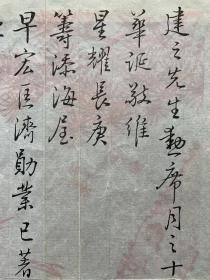 建之先生勳席月之十
華誕敬維
星耀長庚
籌添海屋
早宏匡濟勛業已著